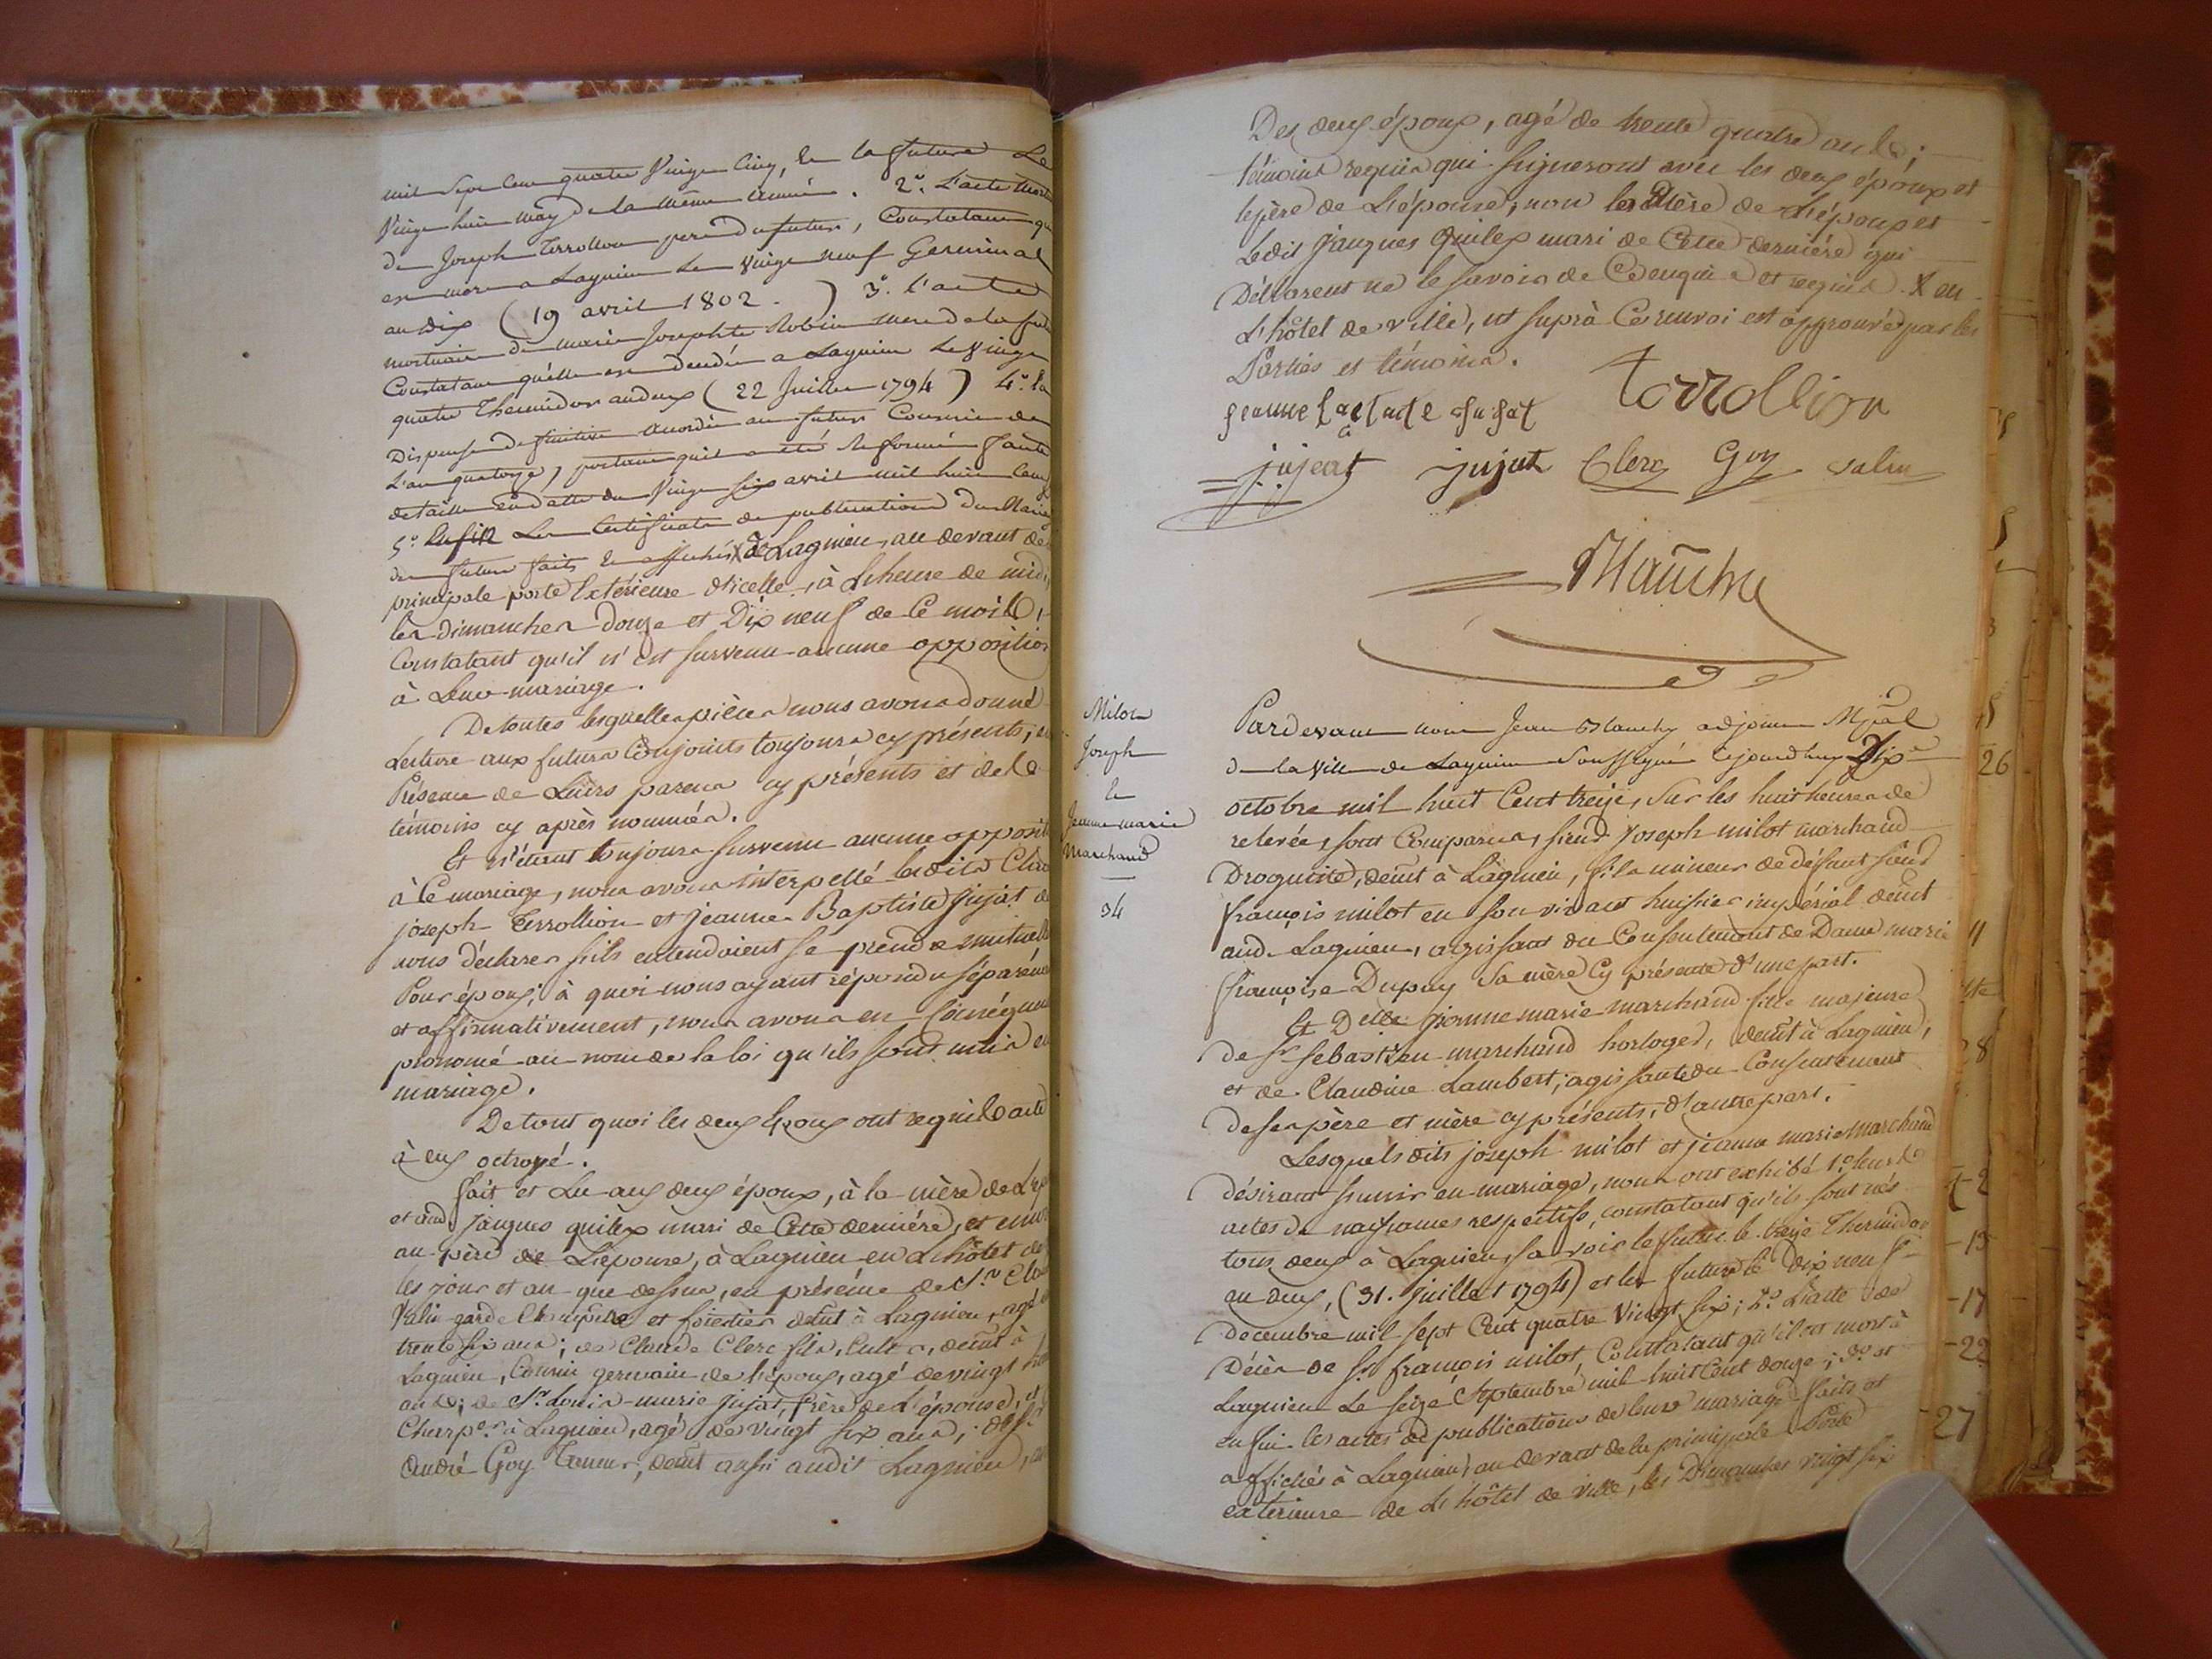 mil sept cent quatre vingt cinq, et la future le
vingt huit may de la même année. 2.° L'acte mort
de Joseph Terrollion père du futur, constatant qu
est mort a Lagnieu le vingt neuf Germinal
an dix (19 avril 1802.) 3.° l'acte
mortuaire de marie Josephte Robin mere de la fut
Constatant quelle est decedée a Lagnieu le vingt
quatre Thermidor an deux (22 Juillet 1794) 4.° la
Dispense definitive accordée au futur Conscrit de
L'an quatorze, portant quil a eté reformé faute
de taille En datte du vingt six avril mil huit cent
5.° Enfin Les Certificats de publications du Mariage
du futur faits et affichés X à Lagnieu, au devant de
principale porte Extérieure d'icelle, à L'heure de midi,
les Dimanches Douze et Dix neuf de Ce mois,
Constatant qu'il n'est survenu aucune opposition
à Leur mariage.
De toutes lesquelles pièces nous avons donné
Lecture aux futurs Conjoints toujours cy présents, en
Présence de Leurs parens cy présents et de
témoins cy après nommés.
Et n'étant toujours survenu aucune opposit
à Ce mariage, nous avons interpellé lesdits Clau
joseph Terrollion et jeanne Baptiste Jujat de
nous déclarer s'ils entendoient se prendre mutuelle
Pour époux; à quoi nous ayant répondu séparéme
et affirmativement, nous avons en Conséquen
prononcé au nom de la loi qu'ils sont unis en
mariage.
De tout quoi les deux Epoux ont requis acte
à eux octroyé.
fait et Lu aux deux époux, à la mère de L'ép
et aud. Jacques quilex mari de Cette dernière, et
au père de L'épouse, à Lagnieu en L'hôtel de
les jour et an que dessus, en présence de S.r Cl
Valin garde Champêtre et forestier demt à Lagnieu, agé
trente six ans; de Claude Clerc fils, Cult.r, demt à
Lagnieu, Cousin germain de l'époux, agé de vingt
ans; de S.r Louis-marie Jujat, frère de L'épouse,
Charp.er à Lagnieu, agé de vingt six ans; de S.r
André Goy Taneur, demt aussi audit Lagnieu,
Des deux époux, agé de trente quatre ans;
témoins requis qui signeront avec les deux époux et
le père de L'épouse, non la Mère de L'époux et
Ledit Jacques Quilex mari de Cette dernière qui
Déclarent ne le savoir de Ce enquis et requis. X en
L'hôtel de ville, ut suprà Ce renvoi est approuvé par les
Parties et témoins.
Terrollion
jujeat jujat Clerc Goy valin
Blanchy
Milot
Joseph
et
Jeanne marie
Marchand
34
Pardevant nous Jean Blanchy adjoint Mpal
de la ville de Lagnieu Soussigné Cejourdhuy Dix
octobre mil huit Cent treize, Sur les huit heures de
relevée, sont Comparus, sieur Joseph milot marchand
Droguiste, demt à Lagnieu, fils mineur de défunt sieur
françois milot en son vivant huissier impérial demt
aud. Lagnieu, agissant du Consentement de Dame marie
françoise Dupuy Sa mère Cy présente d'une part.
Et Delle jeanne marie marchand fille majeure
de S.r Sebastien marchand horloger, demt à Lagnieu,
et de Claudine Lambert; agissante du Consentement
de ses père et mère cy présents, d'autre part.
Lesquels dits joseph milot et jeanne marie marchand
désirant s'unir en mariage, nous ont exhibé 1.° leurs
actes de naissances respectifs, constatant qu'ils sont nés
tous deux à Lagnieu, savoir le futur le treize Thermidor
an deux, (31. juillet 1794) et la future le Dix neuf
decembre mil sept Cent quatre Vingt six; 2.° L'acte de
Décès de S.r françois milot, Constatant qu'il est mort à
Lagnieu Le seize Septembre mil huit Cent douze; 3.° et
enfin les actes de publications de leur mariage faits et
affichés à Lagnieu, au devant de la principale Porte
extérieure de L'hôtel de ville, les Dimanches vingt six
26
11
8
-2
-15
-17
-22
-27